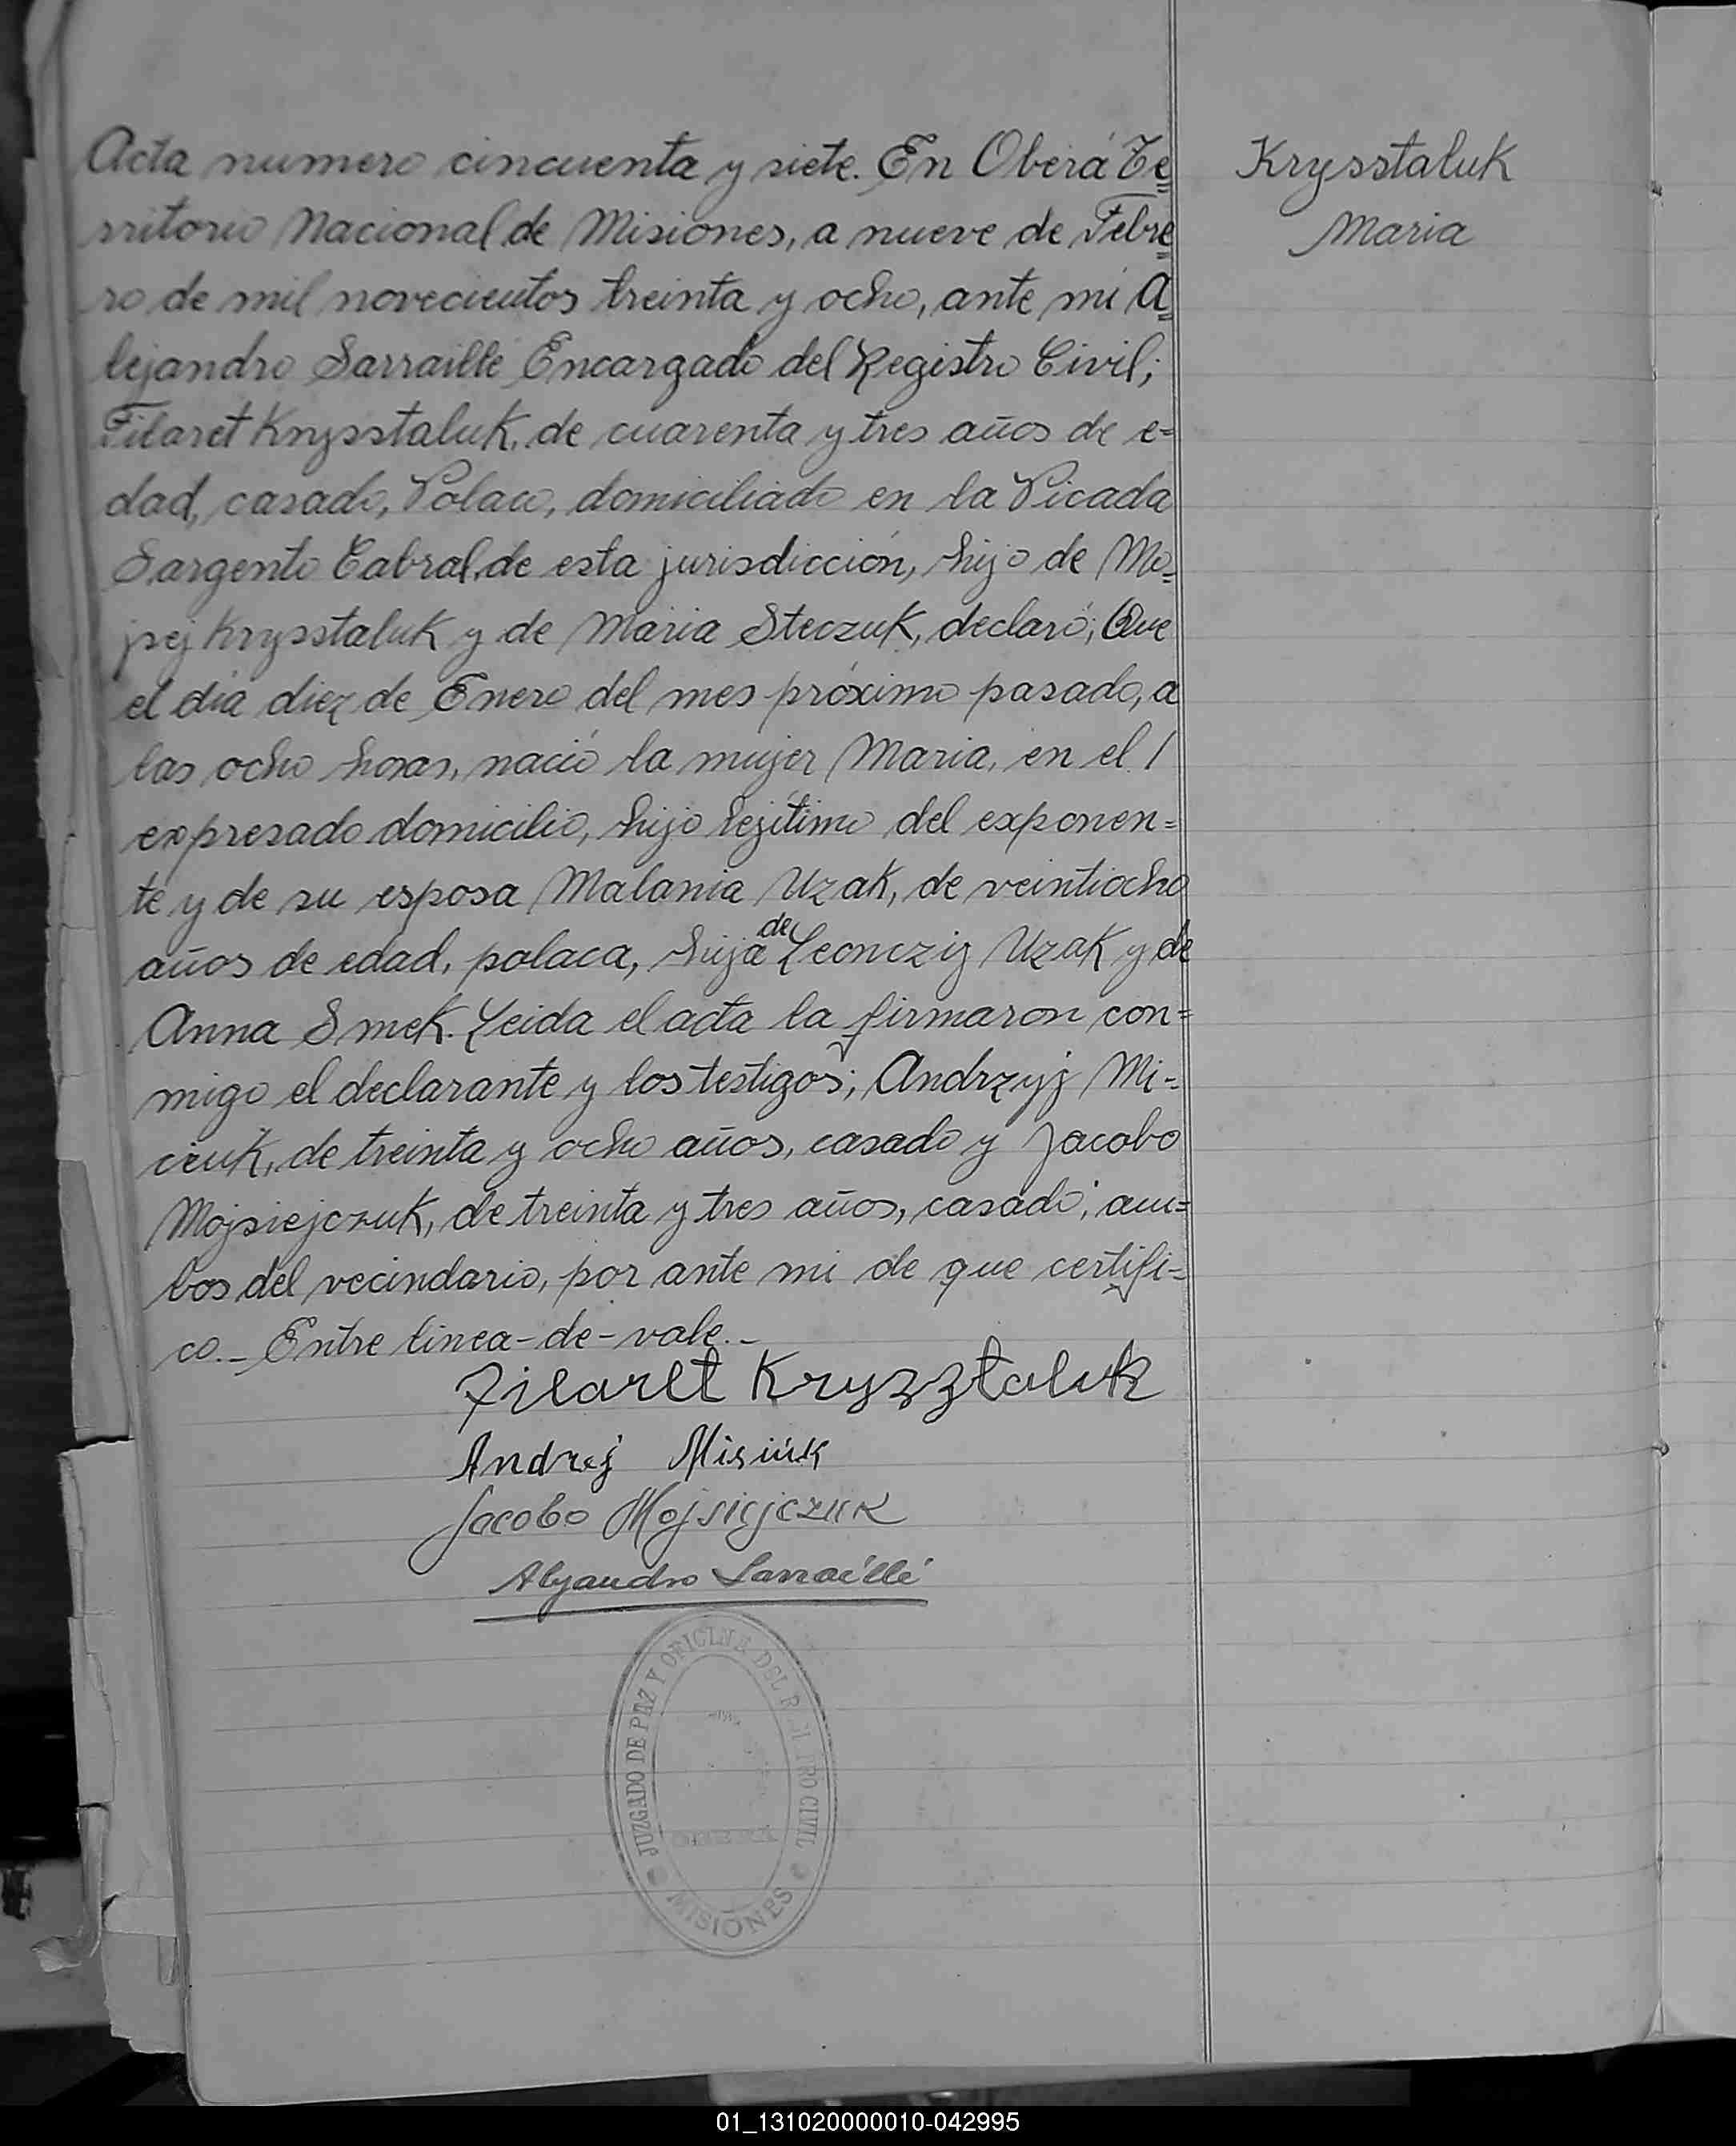 Acta numero cincuenta y siete. En Oberá Te=
rritorio Nacional de Misiones, a nueve de Febre=
ro de mil novecientos treinta y ocho, ante mi A=
lejandro Sarraillé Encargado del Registro Civil;
Filaret Krysstaluk, de cuarenta y tres años de e=
dad, casado, Polaco, domiciliado en la Picada
Sargento Cabral, de esta jurisdicción, hijo de Mo=
jsej Krysstaluk y de Maria Steczuk, declaró; Que
el día diez de Enero del mes próximo pasado, a
las ocho horas, nació la mujer Maria, en el /
expresado domicilio, hijo legítimo del exponen=
te y de su esposa Malania Uzak, de veintiocho
años de edad, polaca, hija de Leonczij Uzak y de
Anna Smek. Leida el acta la firmaron con=
migo el declarante y los testigos; Andrzyj Mi-
ciuk, de treinta y ocho años, casado y Jacobo
Mojsiejczuk, de treinta y tres años, casado; am=
bos del vecindario, por ante mi de que certifi=
co.- Entre linea-de-vale.-
Filaret Kryzztaluk
Andrej Misiuk
Jacobo Mojsiejczuk
Alejandro Sarraillé
JUZGADO DE PAZ Y OFICINA DEL REGISTRO CIVIL
MISIONES
Krysstaluk
Maria
01_131020000010-042995